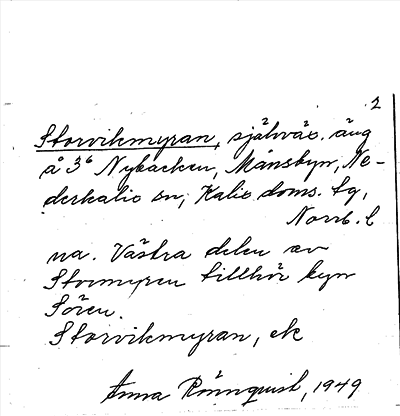 2
Storvikmyran, självväx. äng
å 3⁶ Nybacken, Månsbyn, Ne-
derkalix sn, Kalix doms. tg,
Norrb. l
na. Västra delen av
Stormyren tillhör byn
Sören.
Storvikmyran, ek
Anna Rönnquist, 1949